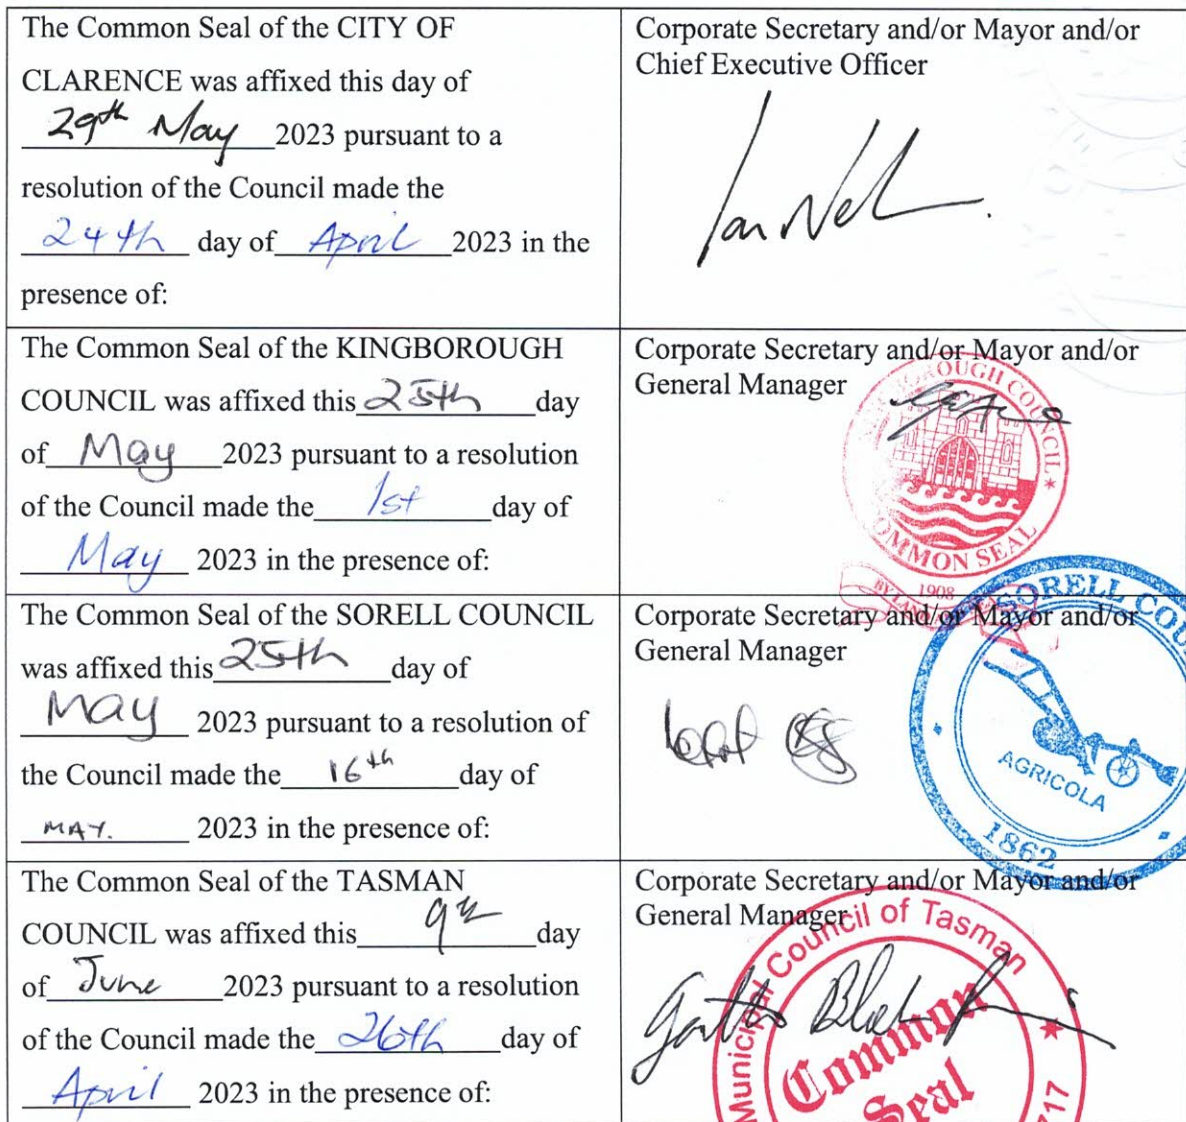 The Common Seal of the CITY OF
CLARENCE was affixed this day of
29th May 2023 pursuant to a
resolution of the Council made the
24th day of April 2023 in the
presence of:
Corporate Secretary and/or Mayor and/or
Chief Executive Officer
The Common Seal of the KINGBOROUGH
COUNCIL was affixed this 25th day
of May 2023 pursuant to a resolution
of the Council made the 1st day of
May 2023 in the presence of:
Corporate Secretary and/or Mayor and/or
General Manager
OROUGH COUNCIL
COMMON SEAL
1908
BY LAND
The Common Seal of the SORELL COUNCIL
was affixed this 25th day of
May 2023 pursuant to a resolution of
the Council made the 16th day of
MAY. 2023 in the presence of:
Corporate Secretary and/or Mayor and/or
General Manager
SORELL COU
AGRICOLA
1862
The Common Seal of the TASMAN
COUNCIL was affixed this 9th day
of June 2023 pursuant to a resolution
of the Council made the 26th day of
April 2023 in the presence of:
Corporate Secretary and/or Mayor and/or
General Manager
Municipal Council of Tasman
Common
Seal
717